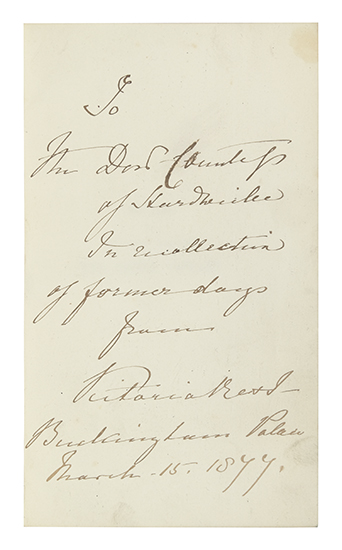 To
The Dow^r Countess
of Hardwicke
In recollection
of former days
from
Victoria R & I
Buckingham Palace
March 15. 1877.